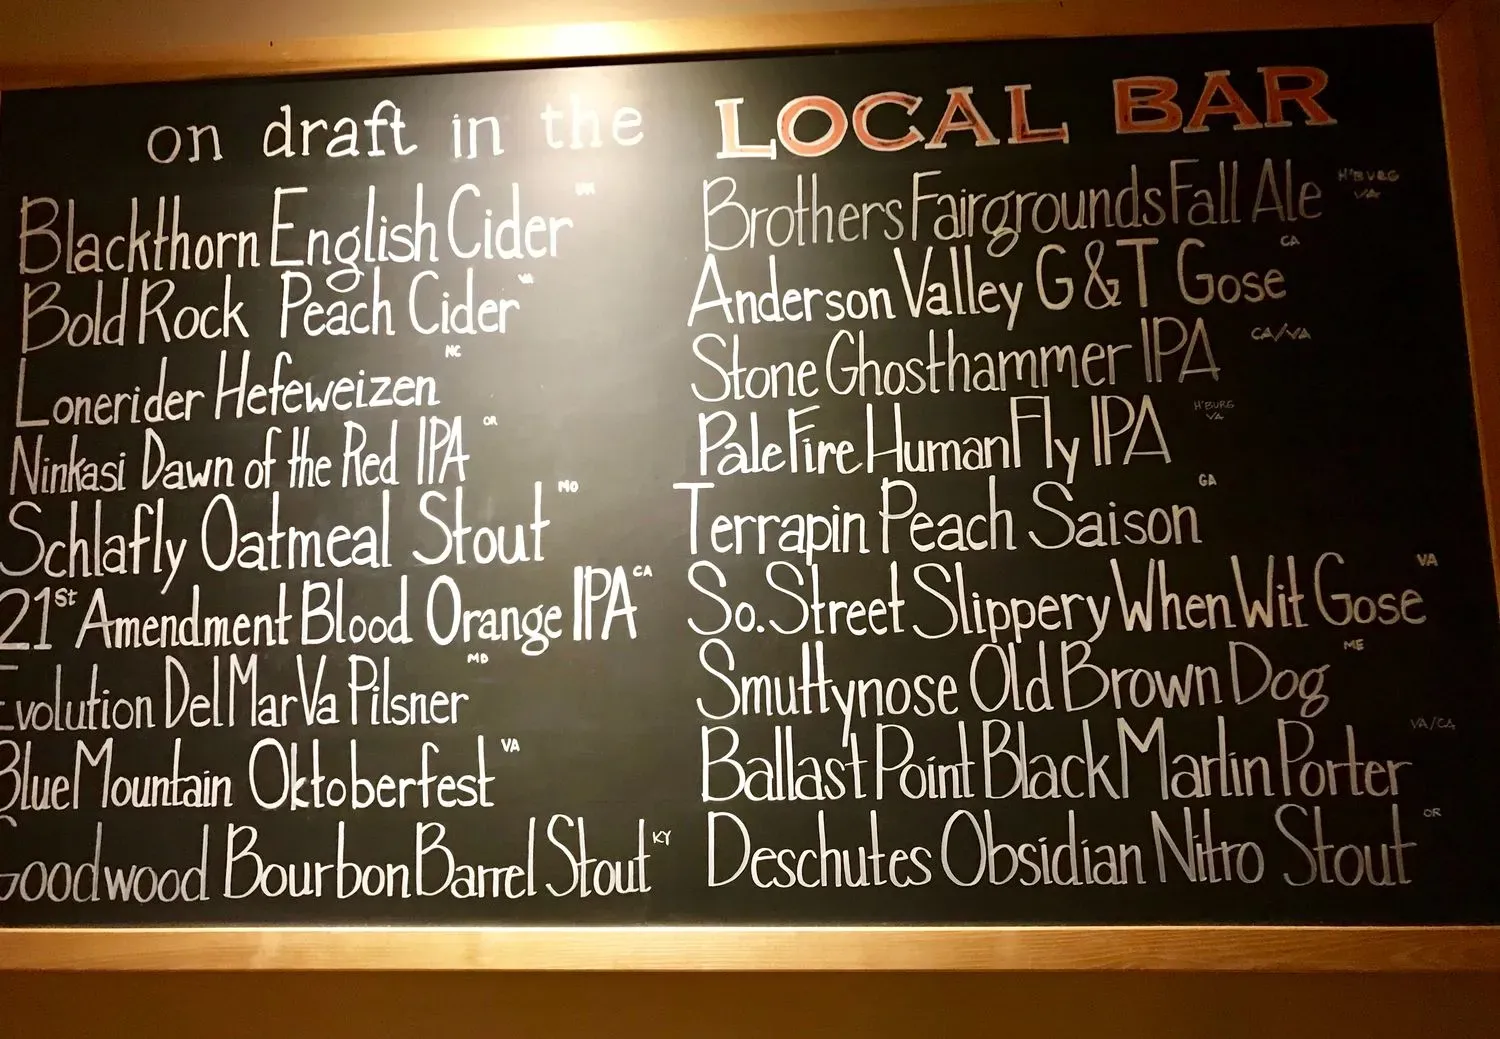 on draft in the LOCAL BAR
Blackthorn English Cider
Bold Rock Peach Cider VA
Lonerider Hefeweizen NC
Ninkasi Dawn of the Red IPA OR
Schlafly Oatmeal Stout MO
21st Amendment Blood Orange IPA CA
Evolution DelMarVa Pilsner MD
Blue Mountain Oktoberfest VA
Goodwood Bourbon Barrel Stout KY
Brothers Fairgrounds Fall Ale H'BURG VA
Anderson Valley G&T Gose CA
Stone Ghosthammer IPA CA/VA
Pale Fire Human Fly IPA H'BURG VA
Terrapin Peach Saison GA
So. Street Slippery When Wit Gose VA
Smuttynose Old Brown Dog ME
Ballast Point Black Marlin Porter VA/CA
Deschutes Obsidian Nitro Stout OR